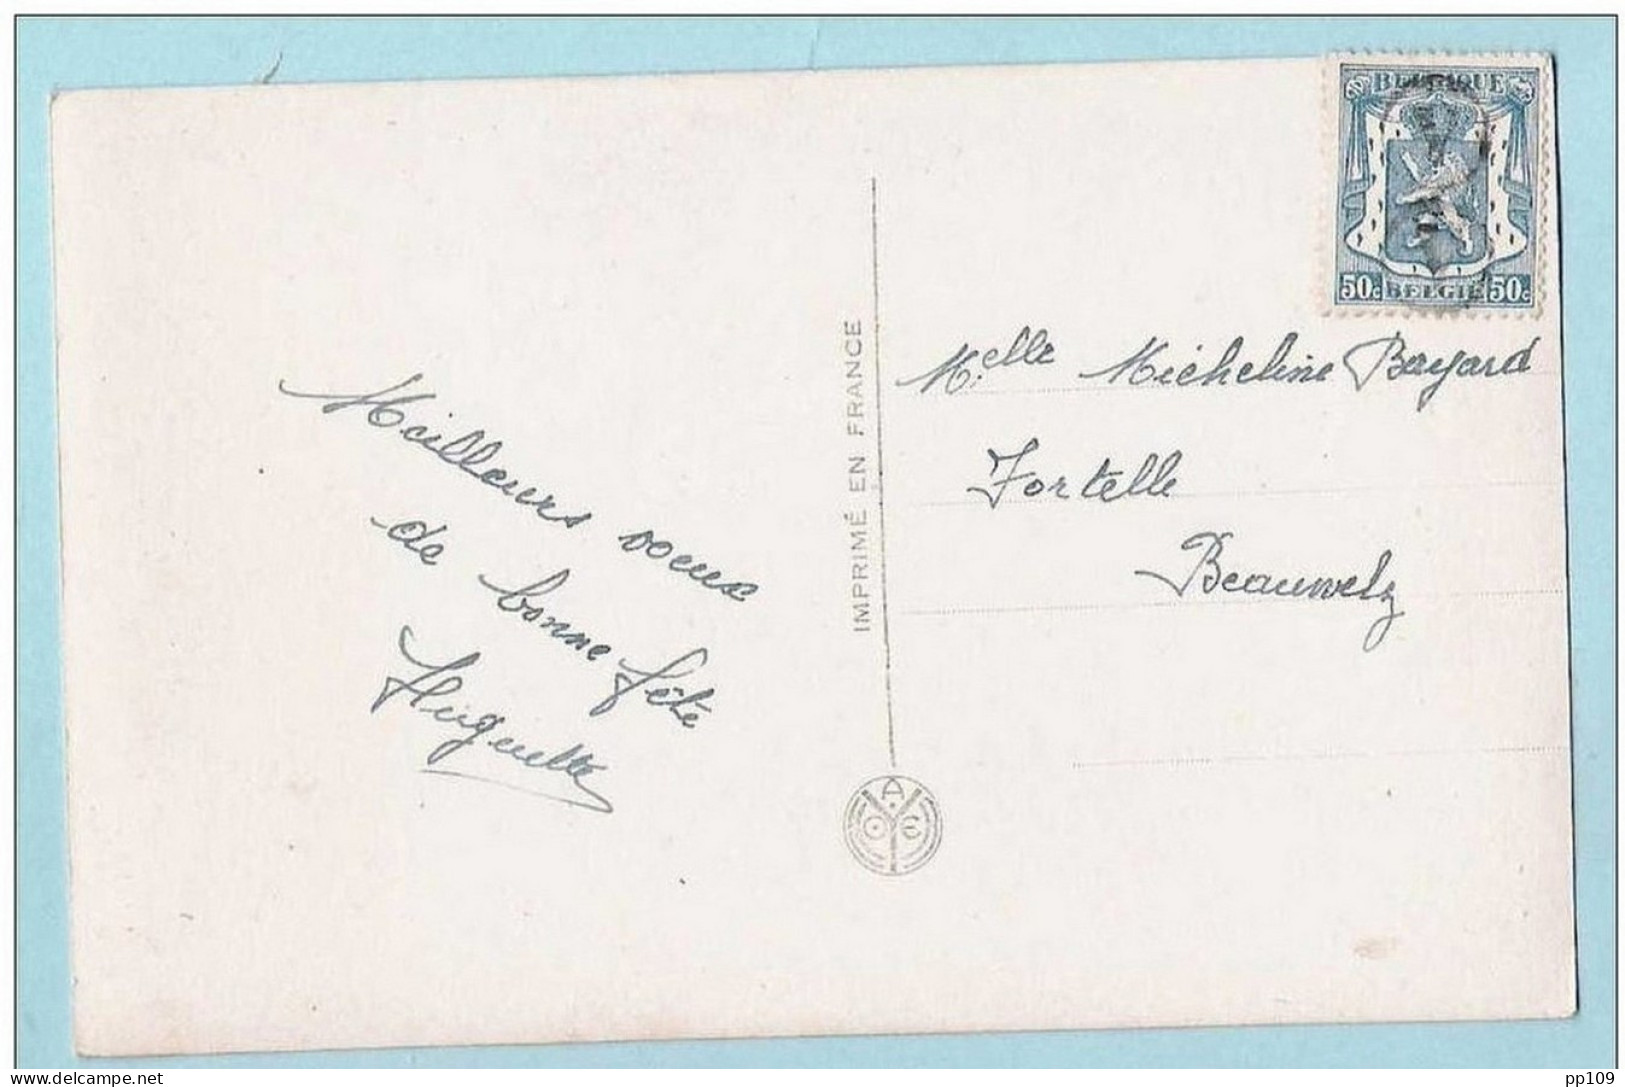 Meilleurs voeux
de bonne fête
Huguette
IMPRIMÉ EN FRANCE
A
O E
BELGIQUE
50c BELGIE 50c
Melle Micheline Bayard
Fortelle
Beauwelz
delcampe.net
pp109